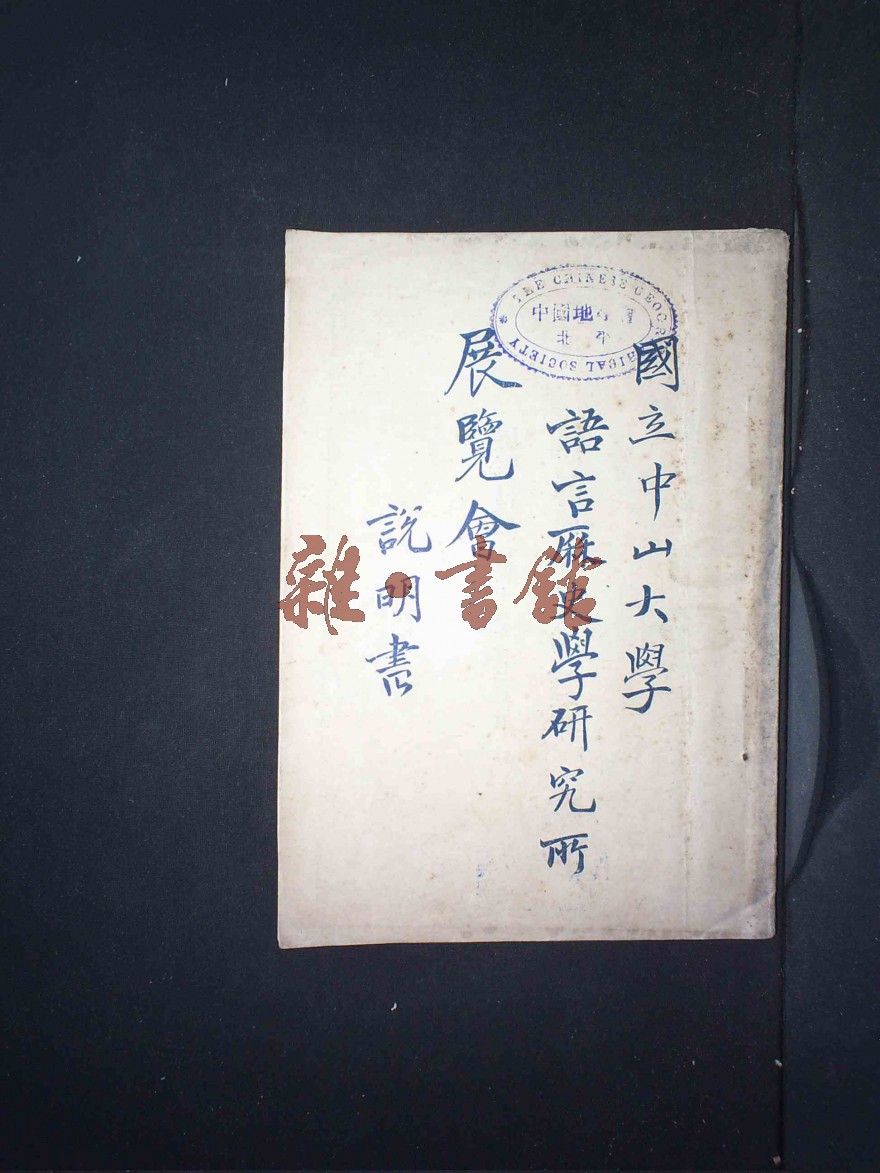 國立中山大學
語言厯史學研究所
展覽會
說明書
THE CHINESE GEOGRAPHICAL SOCIETY
中國地學會
北平
雜·書館